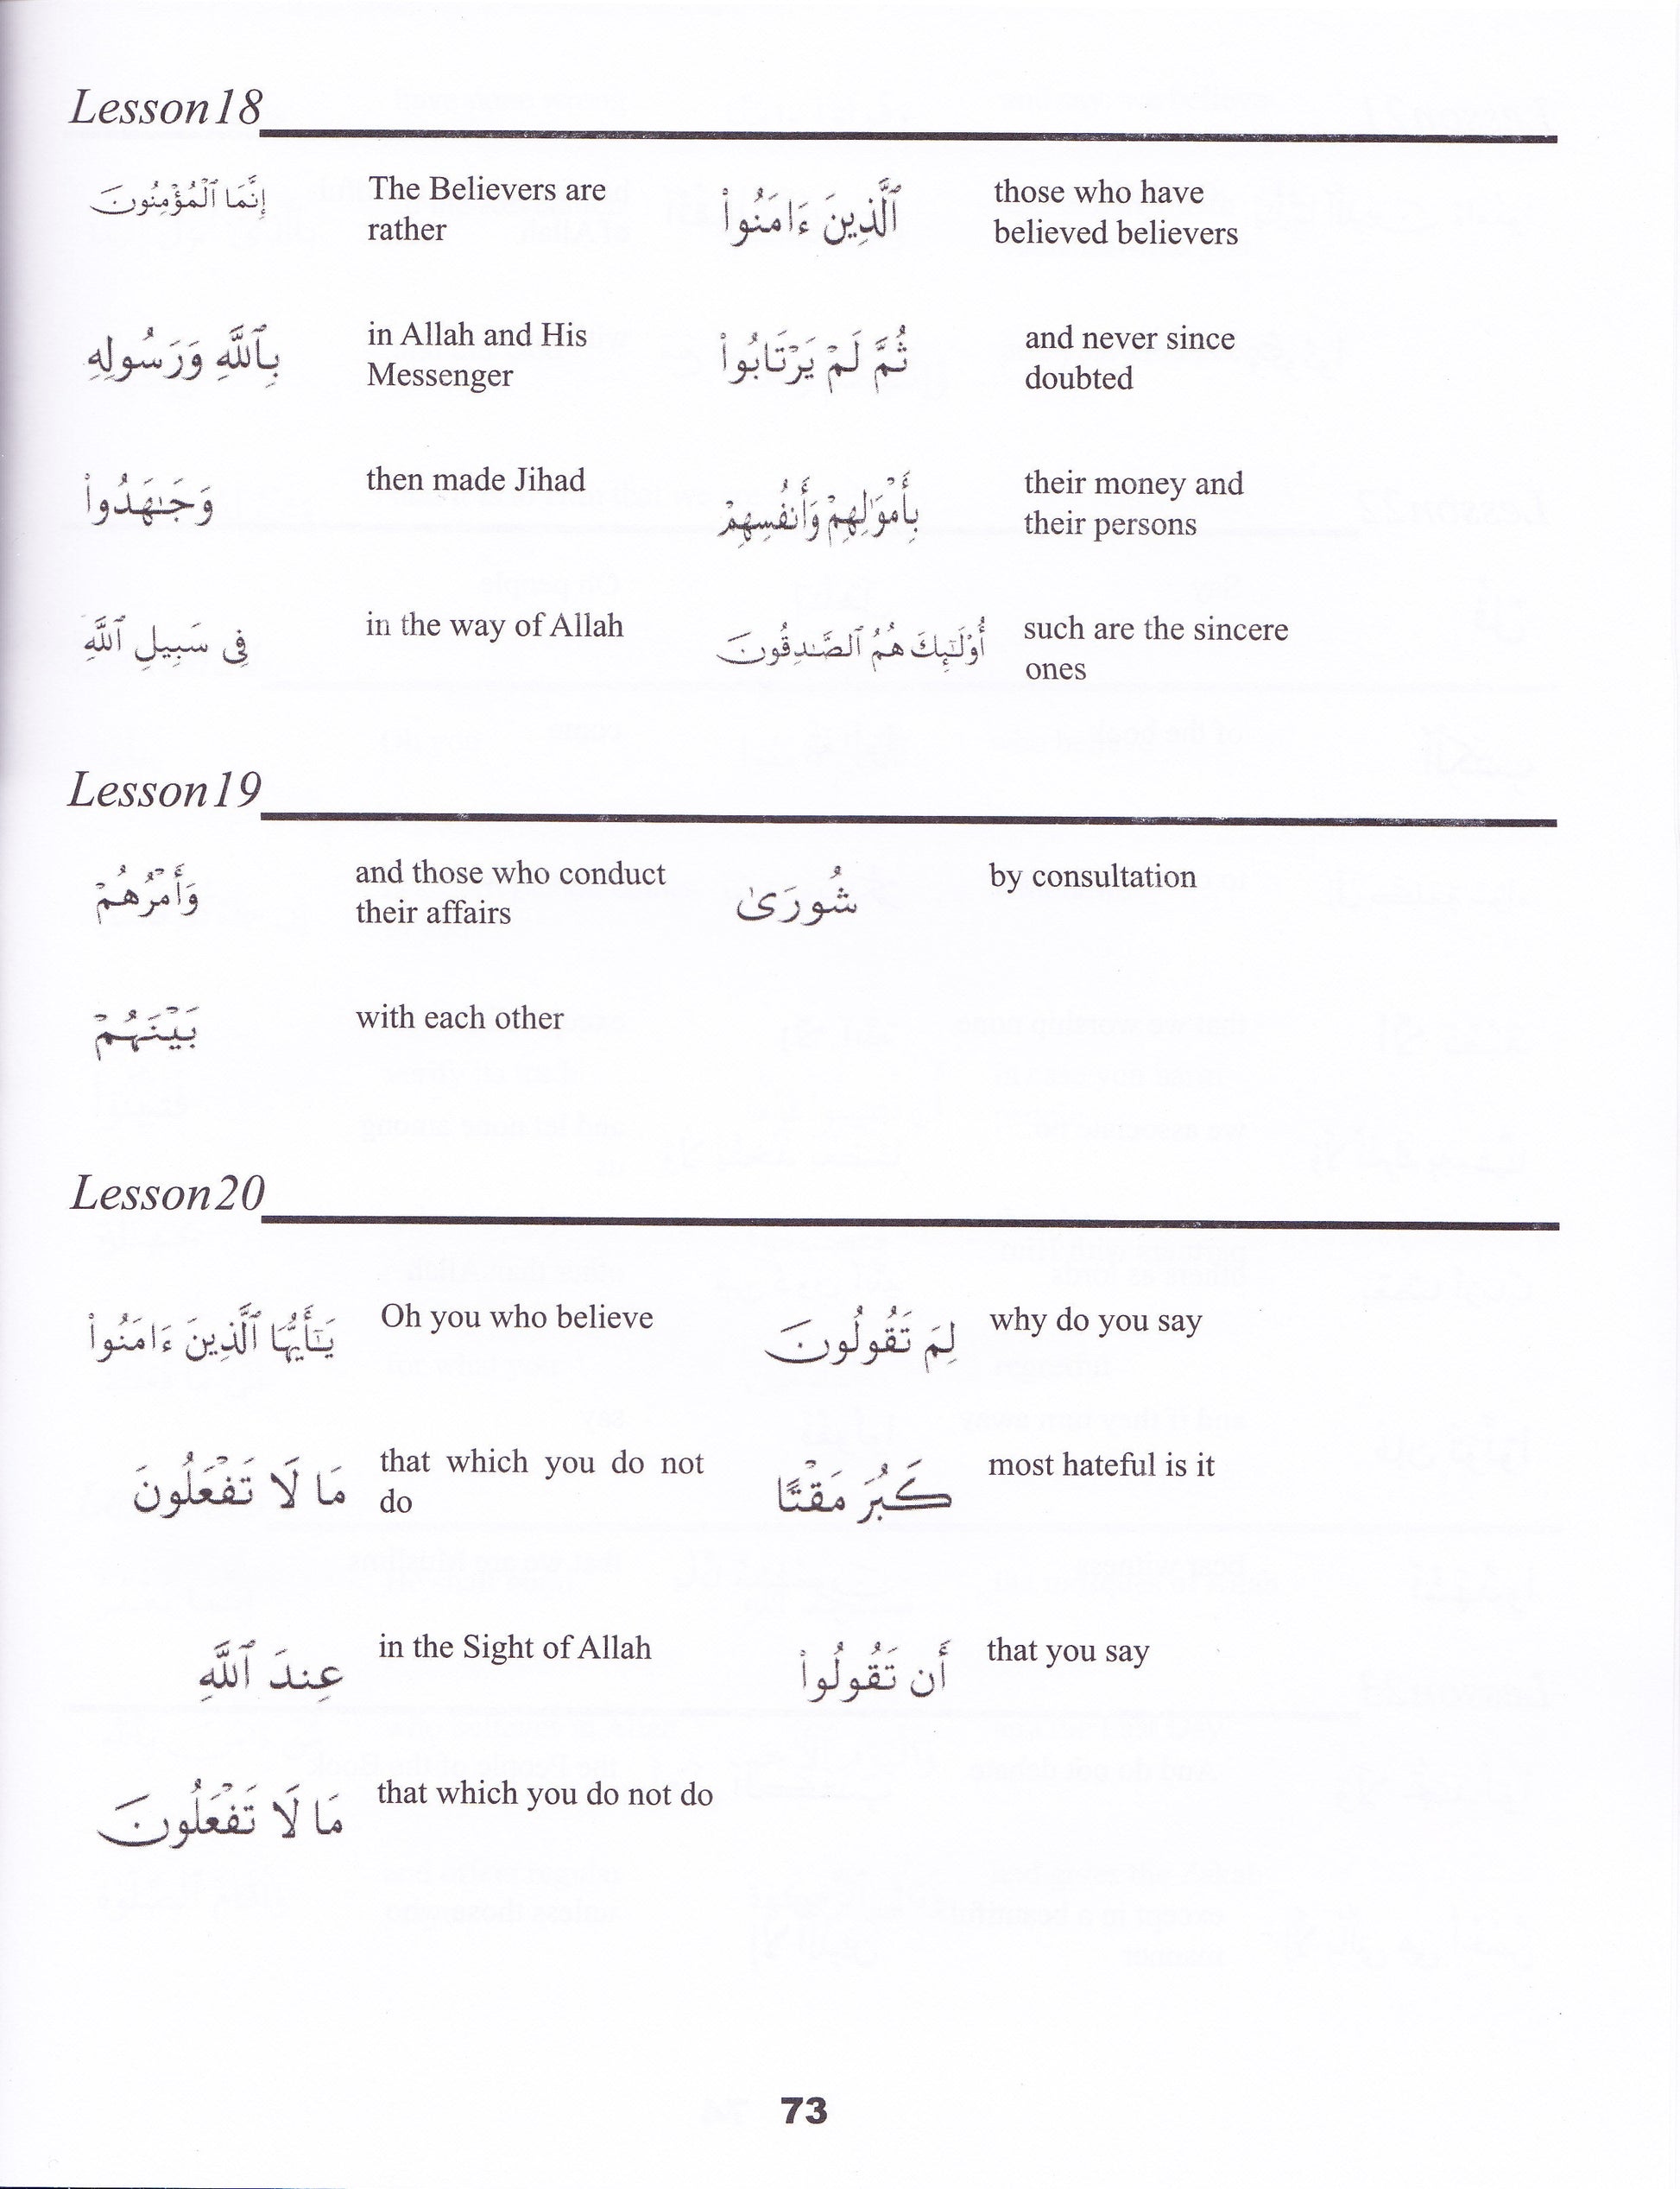 Lesson18
إِنَّمَا ٱلْمُؤْمِنُونَ The Believers are rather ٱلَّذِينَ ءَامَنُوا۟ those who have believed believers
بِٱللَّهِ وَرَسُولِهِ in Allah and His Messenger ثُمَّ لَمْ يَرْتَابُوا۟ and never since doubted
وَجَـٰهَدُوا۟ then made Jihad بِأَمْوَٰلِهِمْ وَأَنفُسِهِمْ their money and their persons
فِى سَبِيلِ ٱللَّهِ in the way of Allah أُو۟لَـٰٓئِكَ هُمُ ٱلصَّـٰدِقُونَ such are the sincere ones
Lesson19
وَأَمْرُهُمْ and those who conduct their affairs شُورَىٰ by consultation
بَيْنَهُمْ with each other
Lesson20
يَـٰٓأَيُّهَا ٱلَّذِينَ ءَامَنُوا۟ Oh you who believe لِمَ تَقُولُونَ why do you say
مَا لَا تَفْعَلُونَ that which you do not do كَبُرَ مَقْتًا most hateful is it
عِندَ ٱللَّهِ in the Sight of Allah أَن تَقُولُوا۟ that you say
مَا لَا تَفْعَلُونَ that which you do not do
73